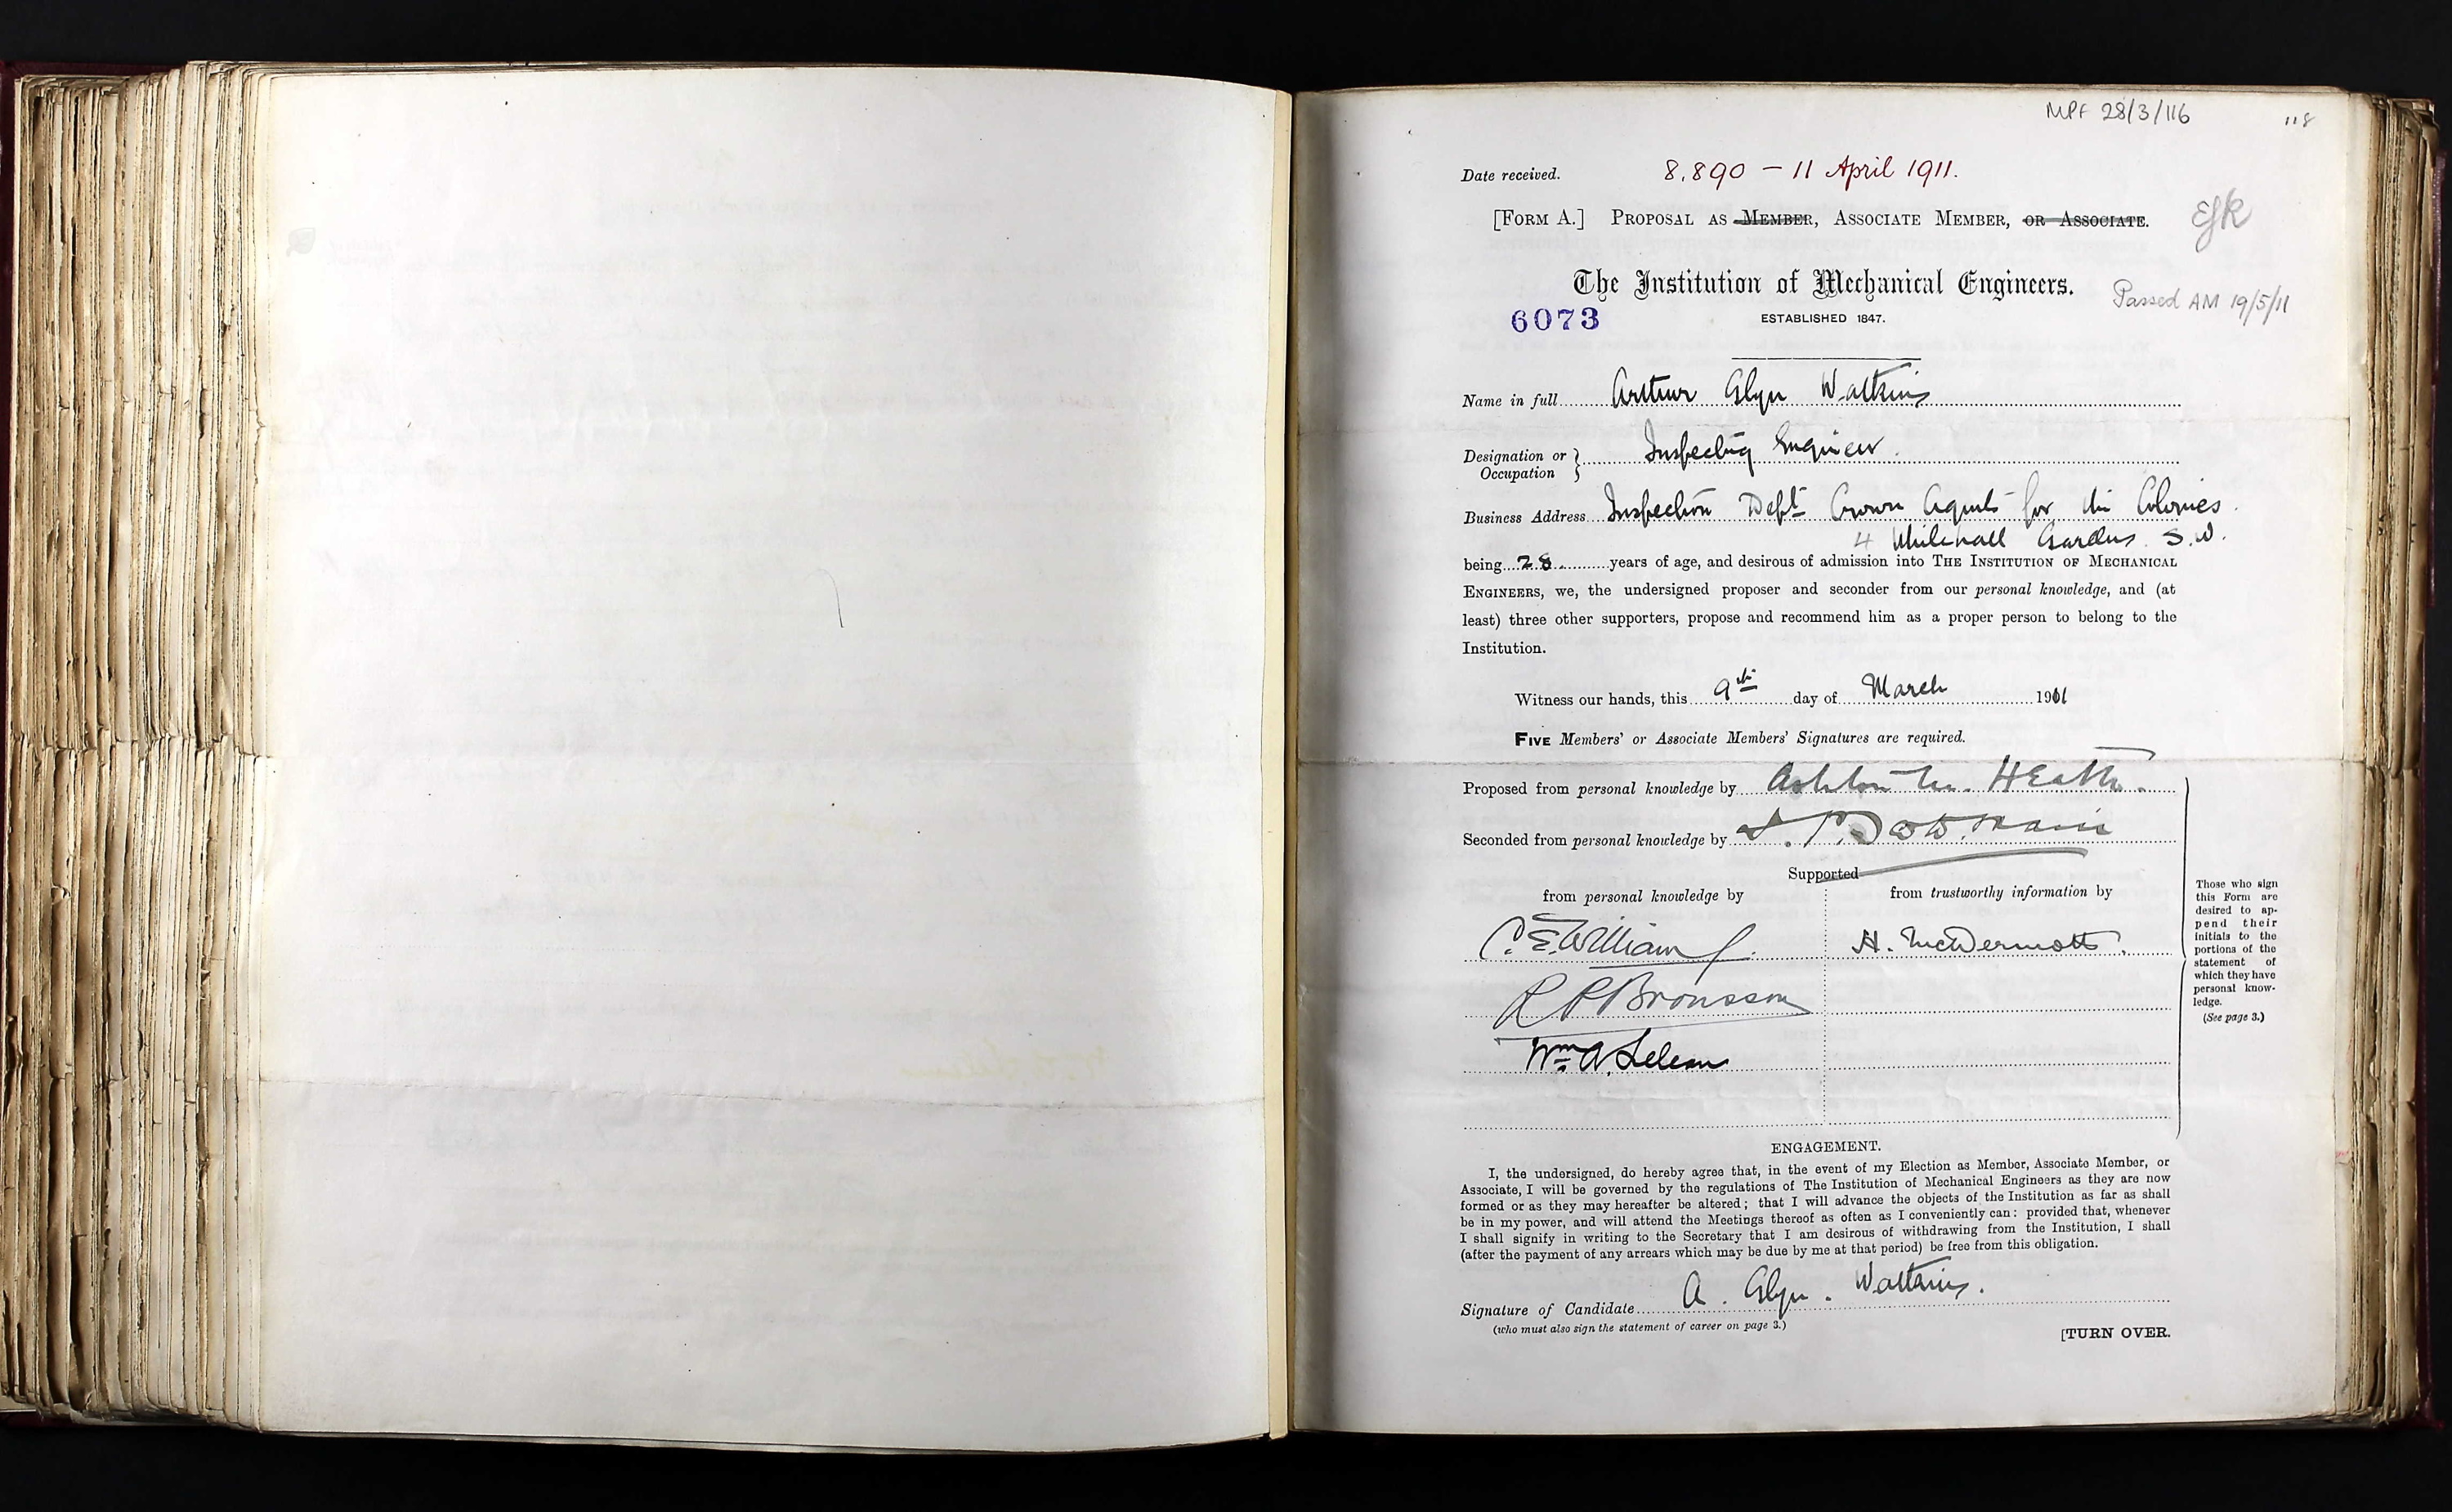 MPF 28/3/116
118
Date received. 8,890 – 11 April 1911.
[FORM A.] PROPOSAL AS MEMBER, ASSOCIATE MEMBER, OR ASSOCIATE.
The Institution of Mechanical Engineers.
Passed AM 19/5/11
6073
ESTABLISHED 1847.
Name in full Arthur Glyn Watkins
Designation or Occupation } Inspecting Engineer.
Business Address Inspection Dept Crown Agents for the Colonies.
4 Whitehall Gardens. S.W.
being 28. years of age, and desirous of admission into THE INSTITUTION OF MECHANICAL
ENGINEERS, we, the undersigned proposer and seconder from our personal knowledge, and (at
least) three other supporters, propose and recommend him as a proper person to belong to the
Institution.
Witness our hands, this 9th day of March 1911
FIVE Members' or Associate Members' Signatures are required.
Proposed from personal knowledge by Ashton M. Heath.
Seconded from personal knowledge by
Supported
from personal knowledge by
from trustworthy information by
C. E. Williams.
H. McDermott.
R P Bronsson
Wm A. Lelean
Those who sign
this Form are
desired to ap-
pend their
initials to the
portions of the
statement of
which they have
personal know-
ledge.
(See page 3.)
ENGAGEMENT.
I, the undersigned, do hereby agree that, in the event of my Election as Member, Associate Member, or
Associate, I will be governed by the regulations of The Institution of Mechanical Engineers as they are now
formed or as they may hereafter be altered; that I will advance the objects of the Institution as far as shall
be in my power, and will attend the Meetings thereof as often as I conveniently can: provided that, whenever
I shall signify in writing to the Secretary that I am desirous of withdrawing from the Institution, I shall
(after the payment of any arrears which may be due by me at that period) be free from this obligation.
Signature of Candidate A. Glyn. Watkins.
(who must also sign the statement of career on page 3.)
[TURN OVER.